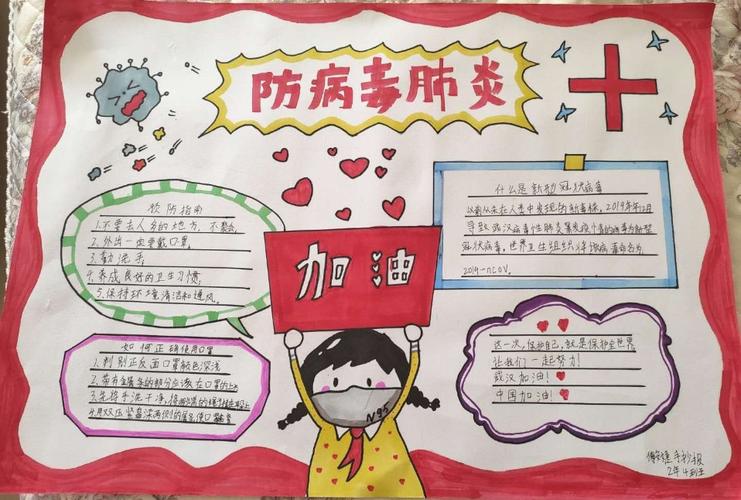 防病毒肺炎
预防指南
1.不要去人多的地方,不聚会
2.外出一定要戴口罩,
3.勤洗手,
4.养成良好的卫生习惯,
5.保持环境清洁和通风。
什么是新型冠状病毒
以前从未在人类中发现的新毒株。2019年12月
导致武汉病毒性肺炎暴发疫情的病毒为新型
冠状病毒,世界卫生组织将该病毒命名为
2019-nCOV。
加油
如何正确使用口罩
1.判别正反面口罩颜色深浅
2.带有金属条的部分应该在口罩的上方
3.先将手洗干净,将两端的绳子挂在耳朵上
4.用双手压紧鼻梁两侧的金属条使口罩
这一次,保护自己,就是保护全世界
让我们一起努力!
武汉加油!
中国加油!
N95
手抄报
2年4班